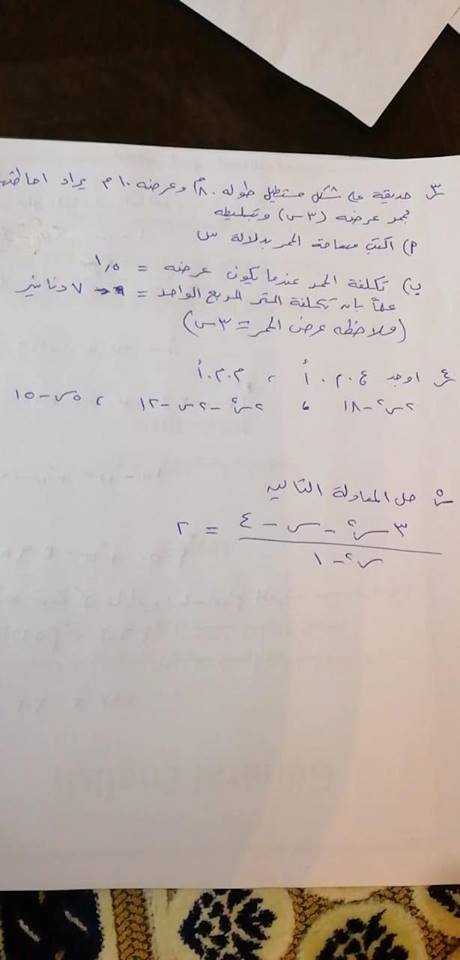 س٣ حديقة على شكل مستطيل طوله ٨٠م وعرضه ١٠م يراد احاطتها
بممر عرضه (٣س) وتبليطه
أ) اكتب مساحة الممر بدلالة س
ب) تكلفة الممر عندما يكون عرضه = ١,٥
علماً بان تكلفة المتر المربع الواحد = ٧ دنانير
(ملاحظه عرض الممر = ٣س)
س٤ اوجد ع.م.أ ، م.م.أ
٢س٢ - ١٨ ، ٢س٢ - ٢س - ١٢ ، ٥س - ١٥
س٥ حل المعادلة التاليه
٣س٢ - س - ٤ = ٢
س٢ - ١